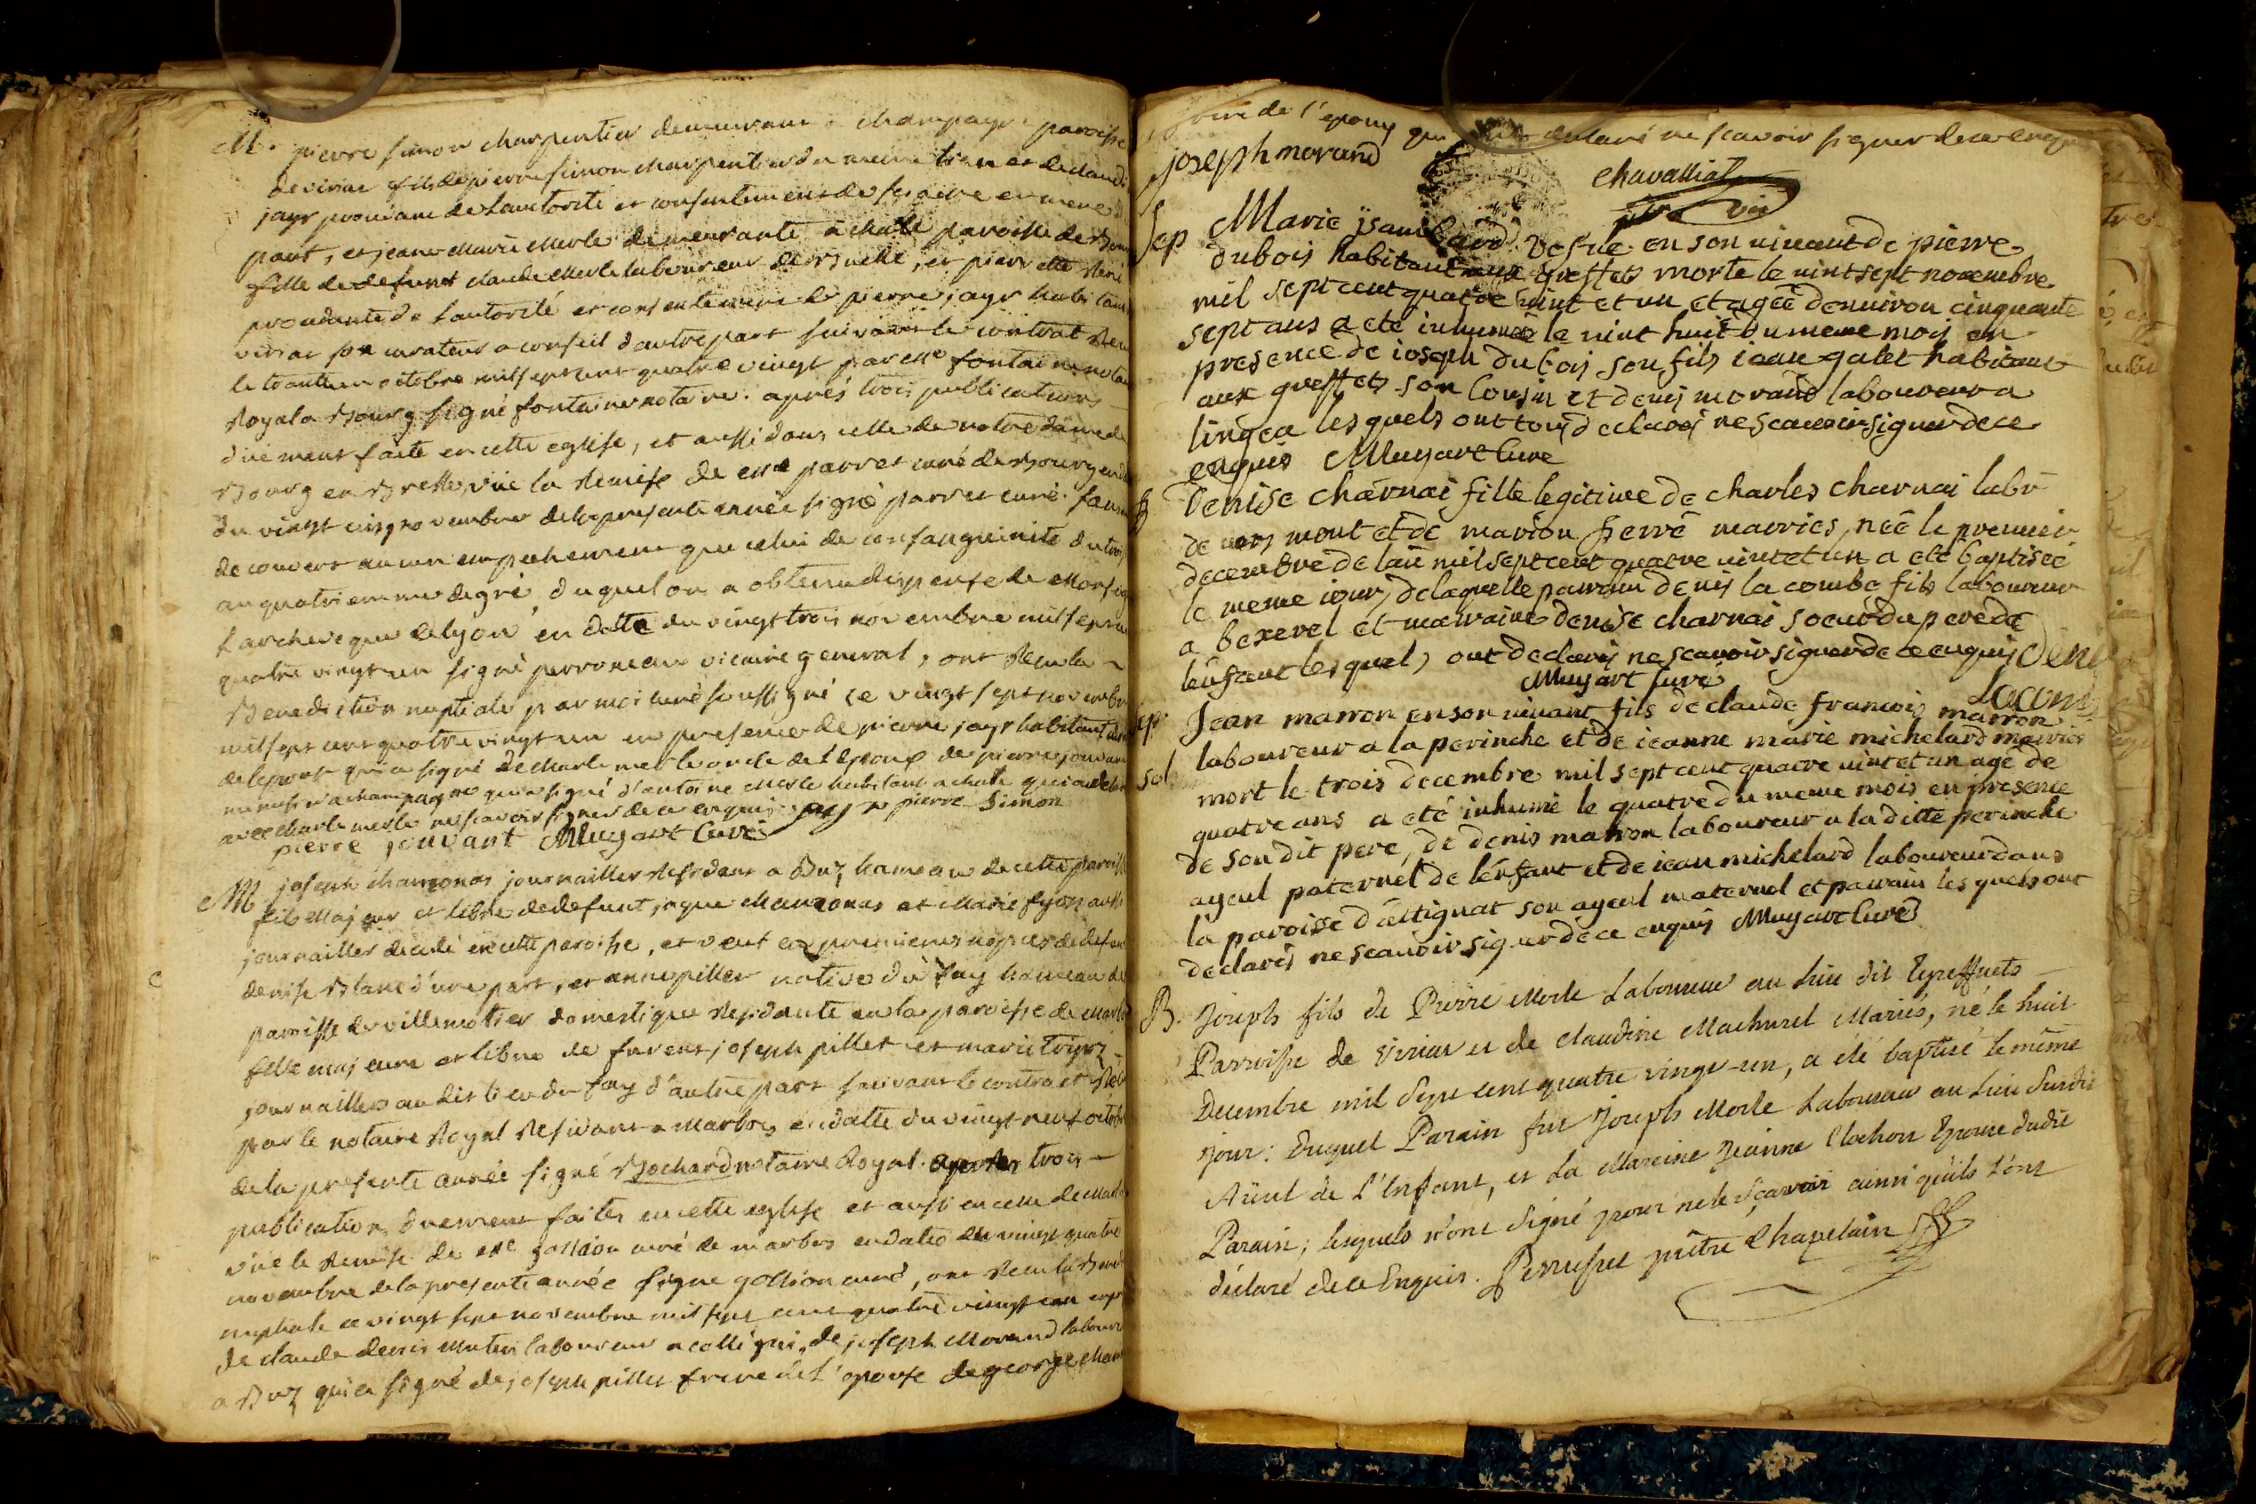 M. pierre simon charpentier demeurant a champagne paroisse
de viriac fils de pierre simon charpentier du meme lieu et de claud
jayr procedant de lauctorité et consentement de ses pere et mere d
part, et jeane Marie Merle demeurante a chalé paroisse de
fille de defunt claude Merle laboureur et pierrette
procedante de lautorité et consentement de pierre jayr habitant
viriac son curateur a conseil d'autre part suivant le contrat Recu
le trente un octobre mil sept cent quatre vingt par me fontaine nota
Royal a Bourg signé fontaine notaire. après trois publications
duement faite en cette eglise, et aussi dans celle de notre dame de
Bourg en Bresse, vue la Remise de mre parret curé de Bourg en
du vingt cinq novembre de la presente année signé parret curé. sans
decouvert aucun empechement que celui de consanguinité du trois
au quatriemme degré, duquel on a obtenu dispense de Monseig
Larcheveque de lyon en datte du vingt trois novembre mil sept
quatre vingt un signé perroneau vicaire general, ont Recu la
Benediction nuptiale par moi curé soussigné ce vingt sept novembre
mil sept cent quatre vingt un en presence de pierre jayr habitant
de lepoux qui a signé de charle merle oncle de l'epouse de pierre jouvan
a champagne qui a signé d'antoine Merle habitant a chalé qui a declaré
avec charle merle ne scavoir signer de ce enquis jayr pierre simon
pierre jouvant Muyart Curé
M joseph chanzonas journailler Residant a Buz hameau de cette paroisse
fils Majeur et libre de defunt jaque chanzonas et Marie fyon aussi
journailler decedé en cette paroise, et veuf en premieres nopces de defun
denise Blanc d'une part, et anne pillet native du fay hameau de
paroisse de villemotier domestique Residante en la paroisse de Marb
fille majeure et libre de furent joseph pillet et marie
journaillers au dit lieu du fay d'autre part suivant le contract Recu
par le notaire Royal Resident a Marboz en datte du vingt neuf octobre
de la presente année signé Bochard notaire Royal. apres trois
publications duement faites en cette eglise et aussi en celle de Marb
vue la Remise de mre gollion curé de marbos en date du vingt quatre
novembre de la presente année signé gollion curé, ont Recu la Bened
nuptiale ce vingt sept novembre mil sept cent quatre vingt un en pr
de claude denis Mutin laboureur a colligni, de joseph Morand laboure
a Buz qui a signé de joseph pillet frere de l'epouse de george
de l'epoux qui declaré ne scavoir signer de ce enquis
joseph morand
Chavalliat
ptre vic
Sep Marie ysambard vefue en son uiuant de pierre
dubois habitant aux greffets morte le uint sept nouembre
mil sept cent quatre uint et un et agée denuiron cinquante
sept ans a ete inhumée le uint huit du meme mois en
presence de ioseph dubois son fils iean galet habitant
aux greffets son cousin et denis morand laboureur a
lingea les quels ont tous declarés ne scauoir signer de ce
enquis Muyart Cure
B Denise charnai fille legitime de charles charnai labr
de uers mont et de marion ferré mairies, née le premier
decembre de lan mil sept cent quatre uint et un a eté baptisée
le meme iour, de laquelle parrain denis la combe fils laboureur
a bexerel et marraine denise charnai soeur du pere de
lenfant lesquels ont declarés ne scauoir signer de ce enquis Deni
Muyart Curé Lacom
Sep. Jean marron en son uiuant fils de claude francois marron
laboureur a la perinche et de ieanne marie michelard mairies
Sol mort le trois decembre mil sept cent quatre uint et un agé de
quatre ans a eté inhumé le quatre du meme mois en presence
de son dit pere, de denis marron laboureur a la ditte perinche
ayeul paternel de lenfant et de iean michelard laboureur dans
la paroisse d'attignat son ayeul maternel et parrain les quels ont
declarés ne scauoir signer de ce enquis Muyart Curé
B. Joseph fils de Pierre Merle Laboureur au Lieu dit Greffets
Parroisse de Viriat et de Claudine Machurel Mariés, né le huit
Decembre mil Sept cent quatre vingt-un, a été baptisé le même
jour: Duquel Parain fut Joseph Merle Laboureur au Lieu Susdit
Aïeul de L'Enfant, et La Mareine Jeanne Clochon Epouse dudit
Parain; lesquels n'ont Signé pour ne le Sçavoir ainsi qu'ils L'ont
déclaré de ce Enquis. prêtre Chapelain